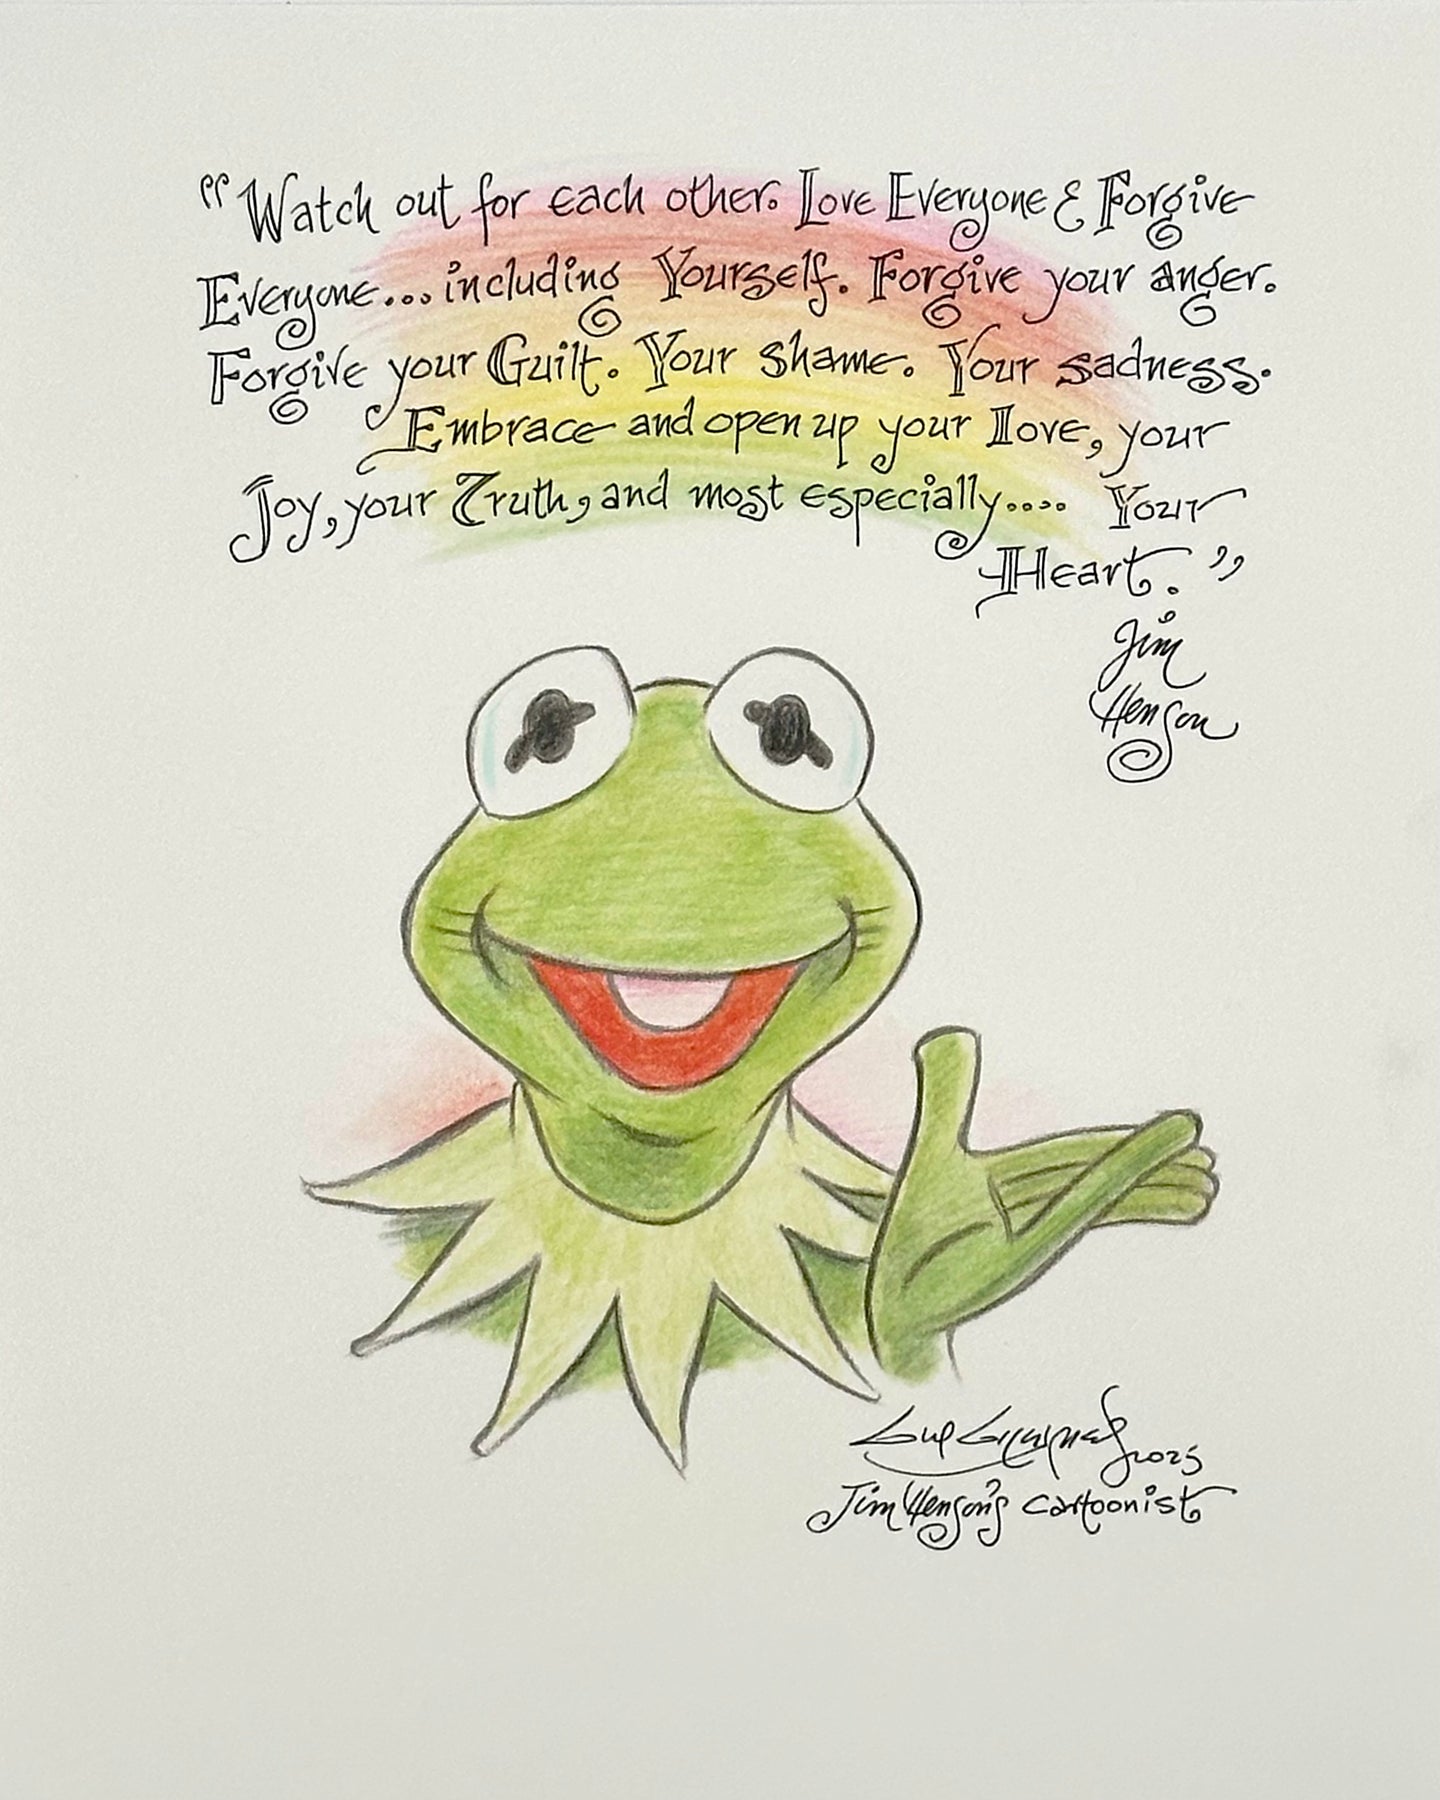 “Watch out for each other. Love Everyone & Forgive
Everyone... including Yourself. Forgive your anger.
Forgive your Guilt. Your Shame. Your Sadness.
Embrace and open up your Love, your
Joy, your Truth, and most especially.... Your
Heart.”
Jim
Henson
Guy Gilchrist 2025
Jim Henson's Cartoonist